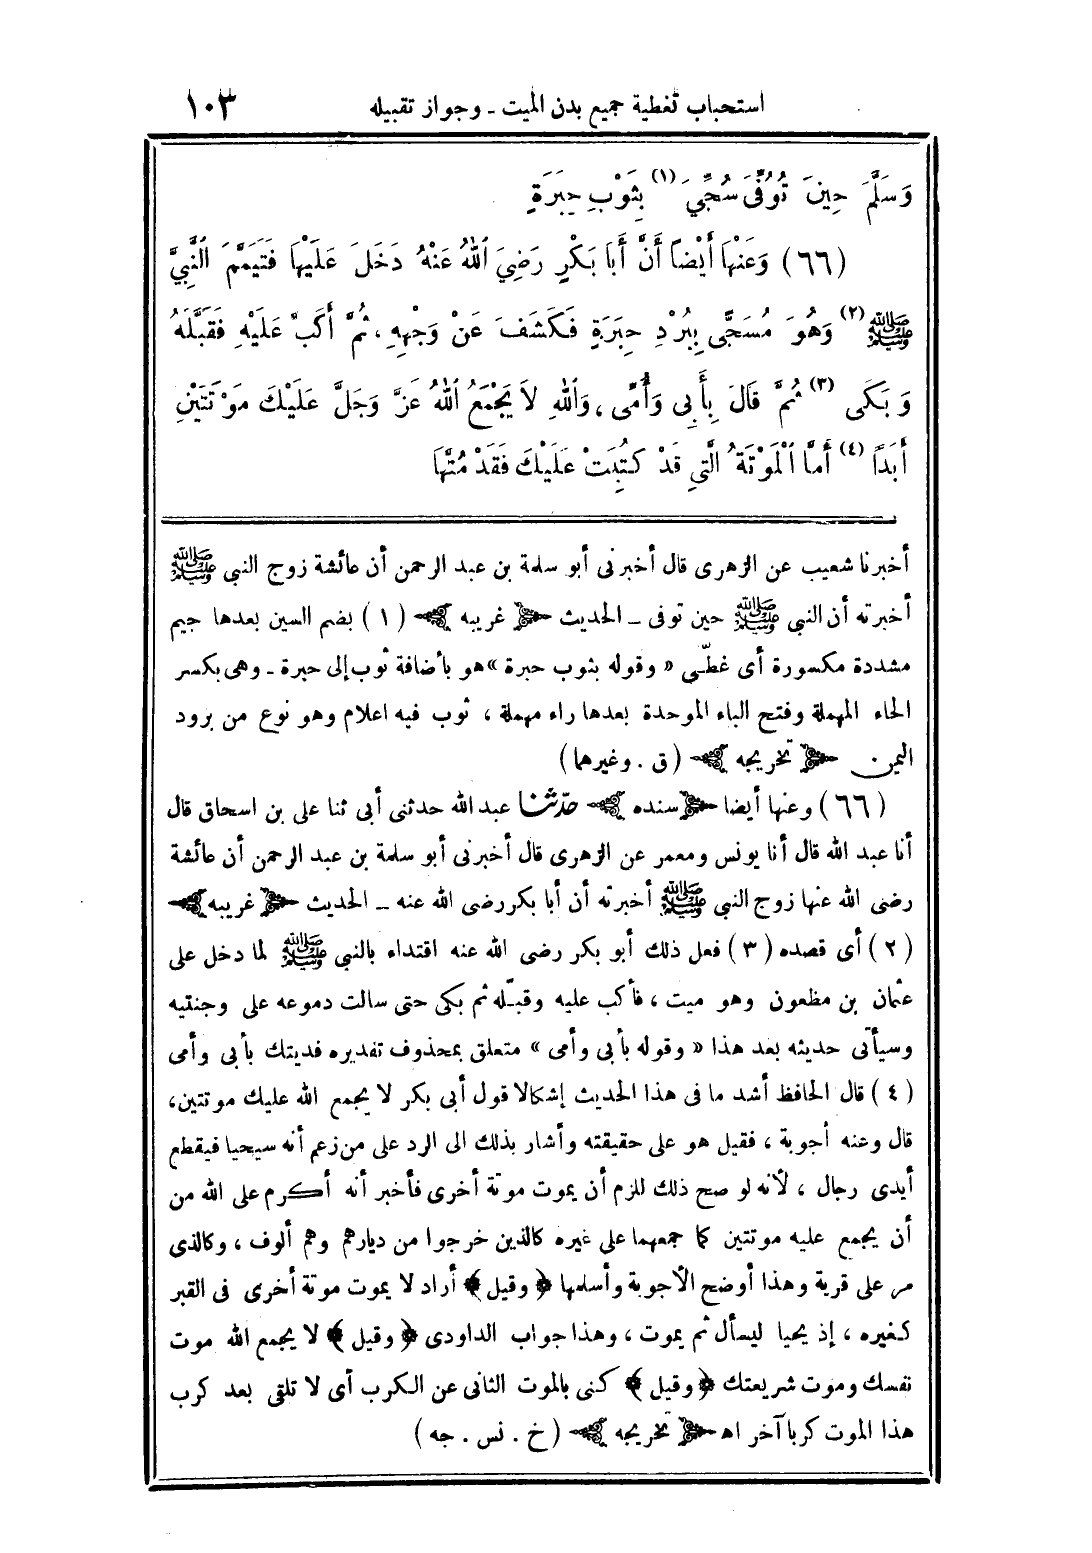 استحباب تغطية جميع بدن الميت ـ وجواز تقبيله ١٠٣
وَسَلَّمَ حِينَ تُوُفِّيَ سُجِّيَ (١) بِثَوْبِ حِبَرَةٍ
(٦٦) وَعَنْهَا أَيْضاً أَنَّ أَبَا بَكْرٍ رَضِيَ اللهُ عَنْهُ دَخَلَ عَلَيْهَا فَتَيَمَّمَ النَّبِيَّ
ﷺ (٢) وَهُوَ مُسَجًّى بِبُرْدِ حِبَرَةٍ فَكَشَفَ عَنْ وَجْهِهِ ، ثُمَّ أَكَبَّ عَلَيْهِ فَقَبَّلَهُ
وَبَكَى (٣) ثُمَّ قَالَ بِأَبِى وَأُمِّى ، وَاللهِ لاَ يَجْمَعُ اللهُ عَزَّ وَجَلَّ عَلَيْكَ مَوْتَتَيْنِ
أَبَدًا (٤) أَمَّا الْمَوْتَةُ الَّتِي قَدْ كُتِبَتْ عَلَيْكَ فَقَدْ مُتَّهَا
أخبرنا شعيب عن الزهرى قال أخبرنى أبو سلمة بن عبد الرحمن أن عائشة زوج النبي ﷺ
أخبرته أن النبي ﷺ حين توفى ـ الحديث ﴿ غريبه ﴾ (١) بضم السين بعدها جيم
مشددة مكسورة أى غطّى « وقوله بثوب حبرة » هو بأضافة ثوب إلى حبرة ـ وهى بكسر
الحاء المهملة وفتح الباء الموحدة بعدها راء مهملة ، ثوب فيه اعلام وهو نوع من برود
اليمن ﴿ تخريجه ﴾ (ق . وغيرها)
(٦٦) وعنها أيضا ﴿ سنده ﴾ حدّثنا عبد الله حدثنى أبى ثنا على بن اسحاق قال
أنا عبد الله قال أنا يونس ومعمر عن الزهرى قال أخبرنى أبو سلمة بن عبد الرحمن أن عائشة
رضى الله عنها زوج النبي ﷺ أخبرته أن أبا بكر رضى الله عنه ـ الحديث ﴿ غريبه ﴾
(٢) أى قصده (٣) فعل ذلك أبو بكر رضى الله عنه اقتداء بالنبي ﷺ لما دخل على
عثمان بن مظعون وهو ميت ، فأكب عليه وقبّله ثم بكى حتى سالت دموعه على وجنتيه
وسيأتى حديثه بعد هذا « وقوله بأبى وأمى » متعلق بمحذوف تقديره فديتك بأبى وأمى
(٤) قال الحافظ أشد ما فى هذا الحديث إشكالا قول أبى بكر لا يجمع الله عليك موتتين ،
قال وعنه أجوبة ، فقيل هو على حقيقته وأشار بذلك الى الرد على من زعم أنه سيحيا فيقطع
أيدى رجال ، لأنه لو صح ذلك للزم أن يموت موتة أخرى فأخبر أنه أكرم على الله من
أن يجمع عليه موتتين كما جمعهما على غيره كالذين خرجوا من ديارهم وهم ألوف ، وكالذى
مر على قرية وهذا أوضح الأجوبة وأسلمها ﴿ وقيل ﴾ أراد لا يموت موتة أخرى فى القبر
كغيره ، إذ يحيا ليسأل ثم يموت ، وهذا جواب الداودى ﴿ وقيل ﴾ لا يجمع الله موت
نفسك وموت شريعتك ﴿ وقيل ﴾ كنى بالموت الثانى عن الكرب أى لا تلقى بعد كرب
هذا الموت كربا آخر اه ﴿ تخريجه ﴾ (خ . نس . جه)